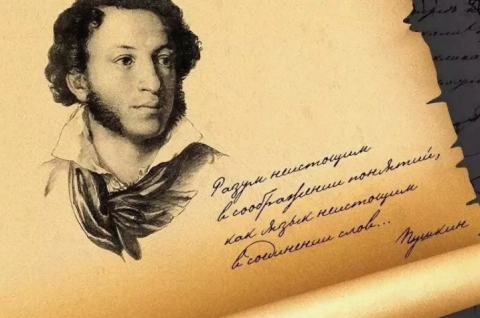 Разум неистощим
в соображении понятий,
как язык неистощим
в соединении слов...
Пушкин